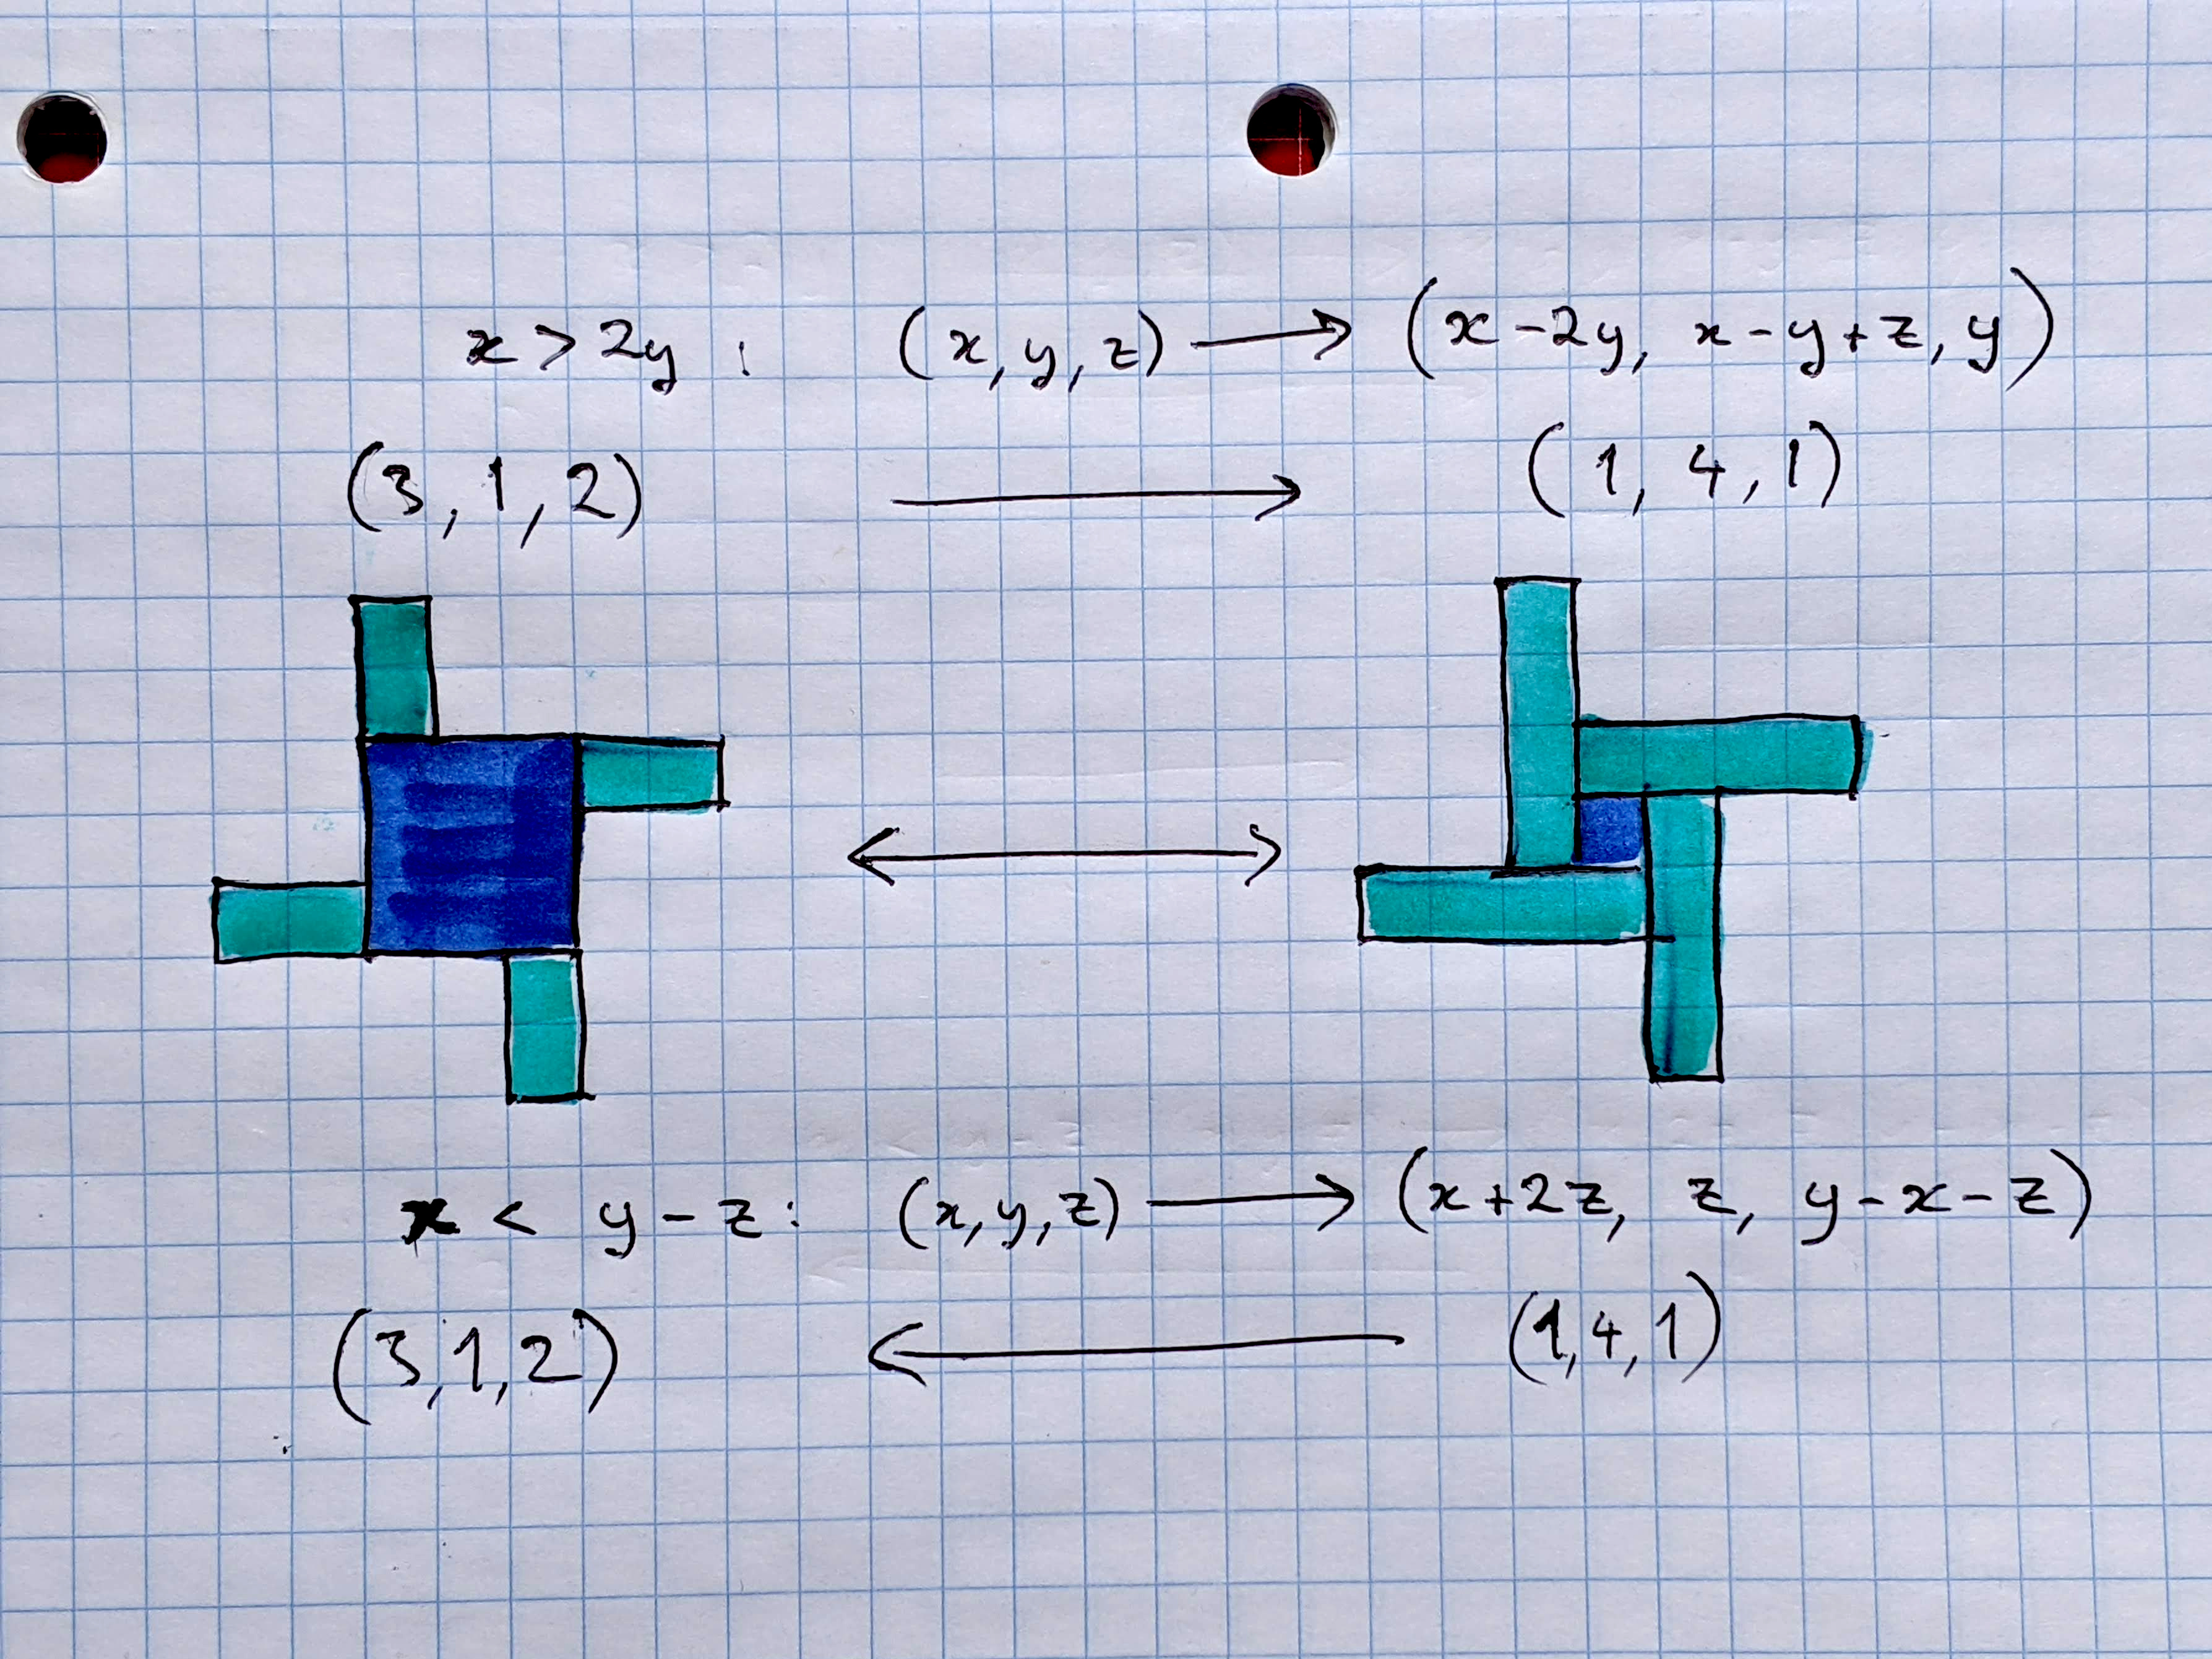 x > 2y : (x, y, z) → (x - 2y, x - y + z, y)
(3, 1, 2) → (1, 4, 1)
↔
x < y - z : (x, y, z) → (x + 2z, z, y - x - z)
(3, 1, 2) ← (1, 4, 1)